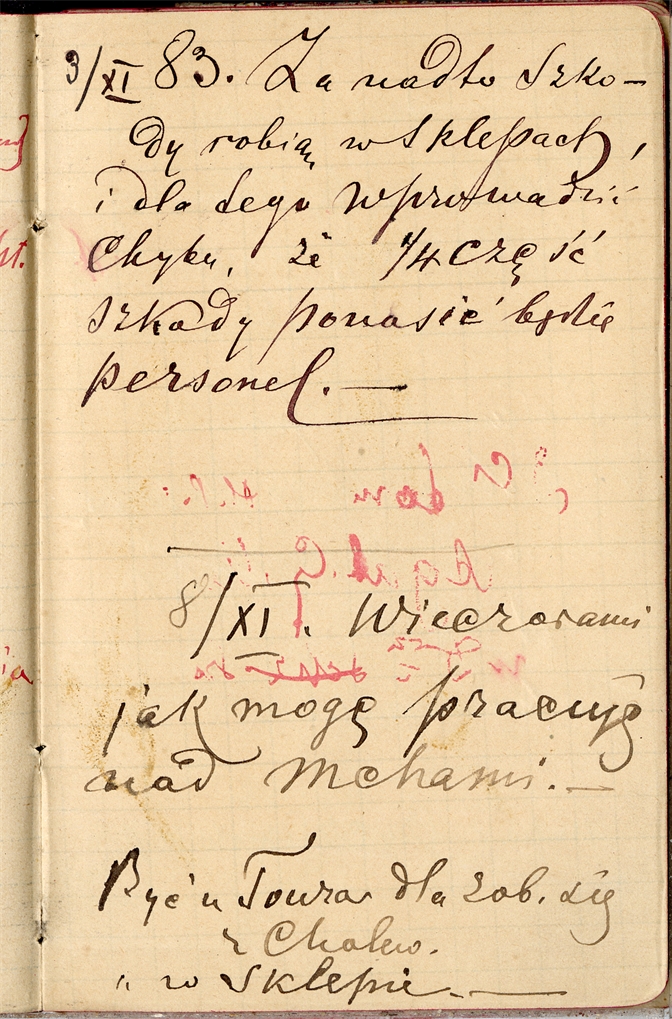 3/XI 83. Za nadto szko-
dy robią w sklepach,
i dla tego wprowadzić
Chyba, że 1/4 część
szkody ponosić będzie
personel. —
8/XI. Wieczorami
jak mogę pracuję
nad Mchami. —
Być u Towar dla zob. się
z Cholew.
" w Sklepie. —